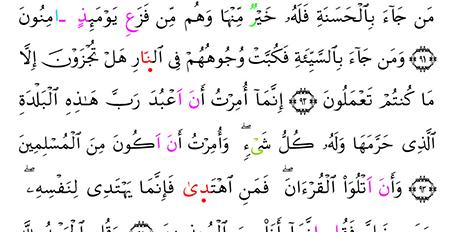 مَن جَآءَ بِالْحَسَنَةِ فَلَهُۥ خَيْرٌ مِّنْهَا وَهُم مِّن فَزَعِ يَوْمَئِذٍ ـَامِنُونَ
﴿٩١﴾ وَمَن جَآءَ بِالسَّيِّئَةِ فَكُبَّتْ وُجُوهُهُمْ فِى النَّارِ هَلْ تُجْزَوْنَ إِلَّا
مَا كُنتُمْ تَعْمَلُونَ ﴿٩٢﴾ إِنَّمَآ أُمِرْتُ أَنَ اَعْبُدَ رَبَّ هَٰذِهِ الْبَلْدَةِ
الَّذِى حَرَّمَهَا وَلَهُۥ كُلُّ شَىْءٍ ۖ وَأُمِرْتُ أَنَ اَكُونَ مِنَ الْمُسْلِمِينَ
﴿٩٣﴾ وَأَنَ اَتْلُوَا۟ الْقُرْءَانَ ۖ فَمَنِ اهْتَدِىٰ فَإِنَّمَا يَهْتَدِى لِنَفْسِهِۦ ۖ